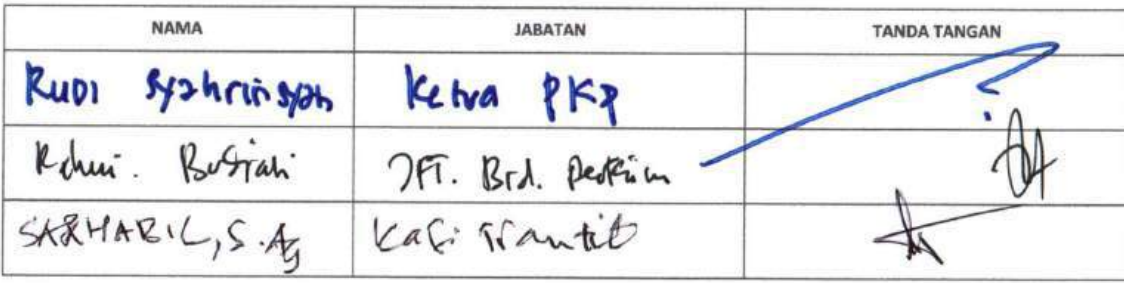 NAMA JABATAN TANDA TANGAN
RUDI Syahrinsyah Ketua PKP
Bustiali JFT. Brd. Perkim
SARHABIL, S.Ag Kasi Trantib